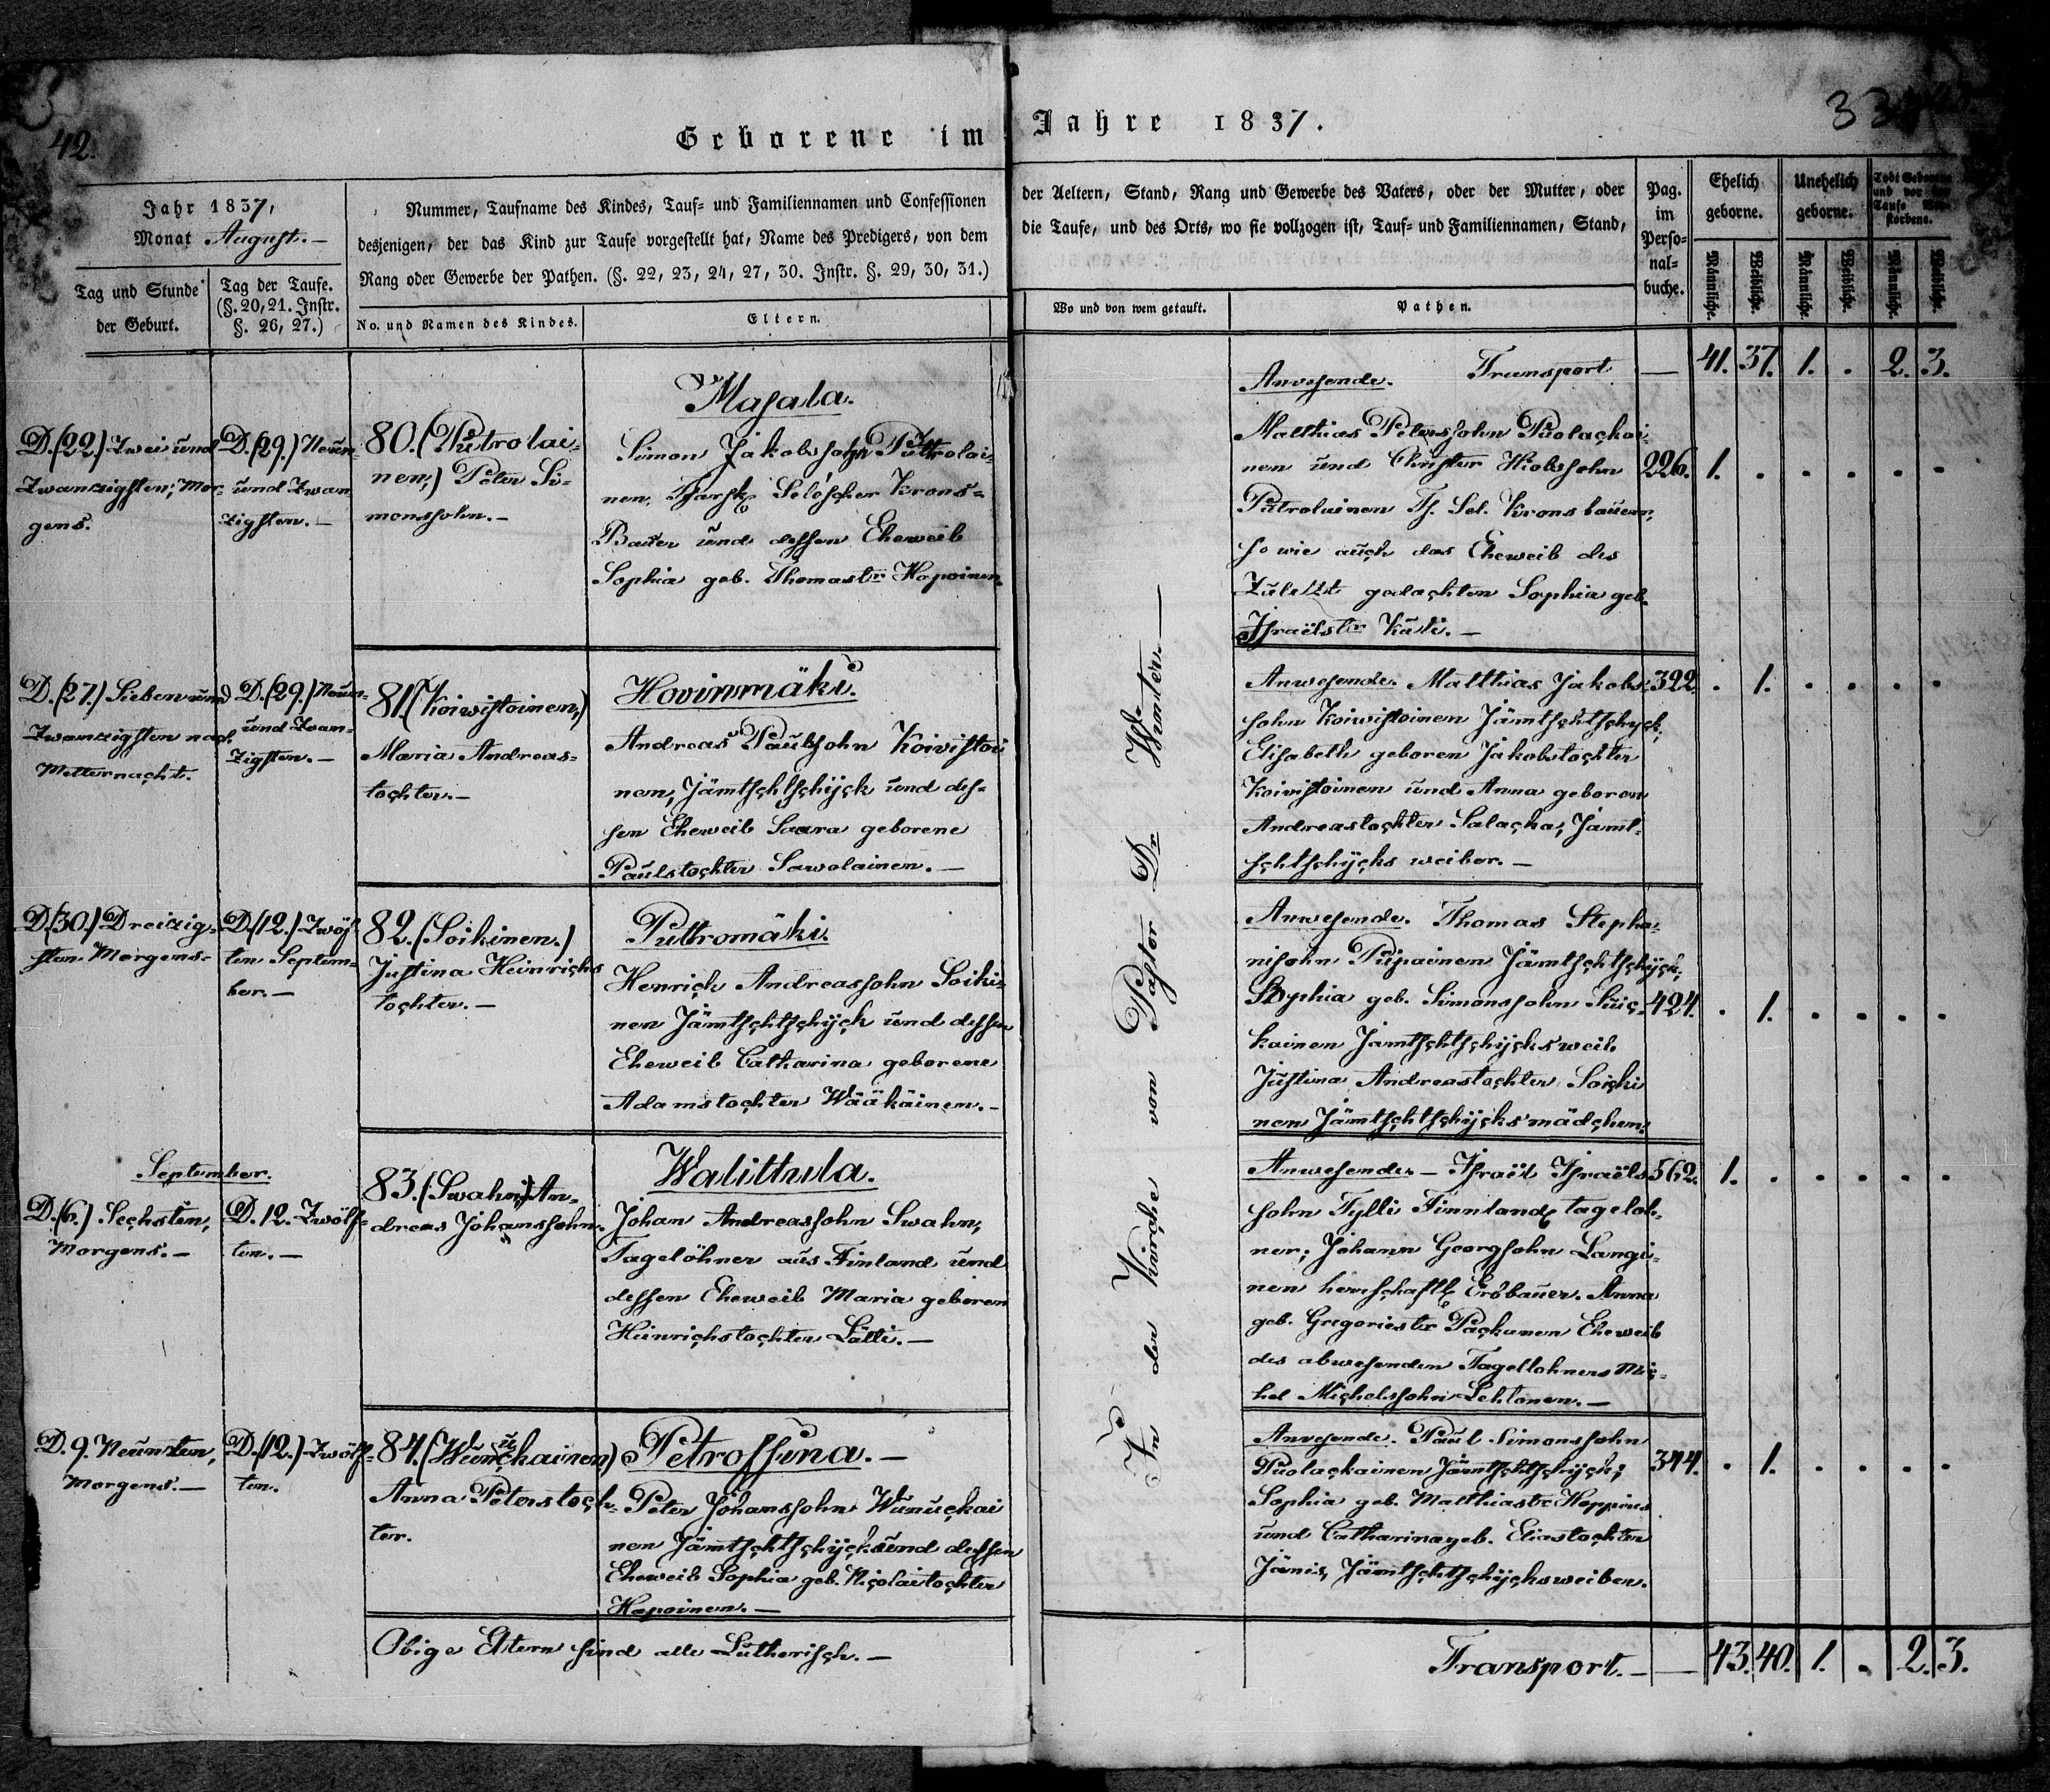 42.
Geborene im Jahre 1837.
Jahr 1837,
Monat August. —
Tag und Stunde der Geburt.
Tag der Taufe. (§. 20, 21. Instr. §. 26, 27.)
Nummer, Taufname des Kindes, Tauf= und Familiennamen und Confessionen
desjenigen, der das Kind zur Taufe vorgestellt hat, Name des Predigers, von dem
Rang oder Gewerbe der Pathen. (§. 22, 23, 24, 27, 30. Instr. §. 29, 30, 31.)
No. und Namen des Kindes.
Eltern.
der Aeltern, Stand, Rang und Gewerbe des Vaters, oder der Mutter, oder
die Taufe, und des Orts, wo sie vollzogen ist, Tauf= und Familiennamen, Stand,
Wo und von wem getauft.
Pathen.
Pag. im Perso= nal= buche.
Ehelich geborne.
Unehelich geborne.
Todt Geborene und vor der Taufe Verstorbene.
Männliche. Weibliche. Männliche. Weibliche. Männliche. Weibliche.
Transport — 41. 37. 1. . 2. 3.
D. (22.) Zwei und
Zwanzigsten; Mor=
gens.
D. (29.) Neun=
und Zwan
zigsten. —
80. (Putrolai=
nen,) Peter Si=
monssohn. —
Masala.
Simon Jakobssohn Puttrolai=
nen, Zarsk. Seloscher Krons=
Bauer und dessen Eheweib
Sophia geb. Thomastr Hapoinen.
Anwesende.
Matthias Peterssohn Puolackai
nen und Christer Hiobssohn
Putrolainen Z. Sel. Kronsbauern,
so wie auch das Eheweib des
Zuletzt gedachten Sophia geb.
Israëlstr Käki. —
226. 1. . . . . .
D. (27.) Sieben und
Zwanzigsten nach
Mitternacht.
D. (29.) Neun=
und Zwan=
zigsten. —
81. (Koiwistoinen,)
Maria Andreas=
tochter. —
Hovinmäki.
Andreas Paulssohn Koivistoi
nen, Jämtschtschijck und des=
sen Eheweib Saara geborene
Paulstochter Sawolainen. —
Anwesende. Matthias Jakobs=
sohn Koiwistoinen Jämtschtschyck;
Elisabeth geboren Jakobstochter
Koivistoinen und Anna geboren
Andreastochter Salacka, Jämt=
schtschijcks weiber. —
322. . 1. . . . .
D. (30.) Dreizig=
sten Morgens.
D. (12.) Zwöf
ten Septem=
ber. —
82. (Soikinen.)
Justina Heinrichs
tochter. —
Puttromäki.
Henrich Andreassohn Soiki=
nen Jämtschtschijck und dessen
Eheweib Catharina geborene
Adamstochter Wääkäinen. —
Anwesende. Thomas Stepha=
nisohn Pupainen Jämtschtschijck;
Sophia geb. Simonssohn Suic=
kainen Jämtschtschijcks weib.
Justina Andreastochter Soicki
nen Jämtschtschijcks mädchen.
424. . 1. . . . .
September.
D. (6.) Sechsten,
Morgens. —
D. 12. Zwölf=
ten. —
83. (Swahn,) An=
dreas Johanssohn.
Walittula.
Johan Andreassohn Swahn,
Tagelöhner aus Finland und
dessen Eheweib Maria geboren
Heinrichstochter Lätti. —
Anwesende — Israël Israëls
sohn Tylli Finnland. tageloh=
ner; Johann Georgsohn Langi=
nen herrschaftl. Erbbauer. Anna
geb. Gregoriestr Packanen Eheweib
des abwesenden Tagellohners Mic=
hel Michelssohn Lehtonen. —
562. 1. . . . . .
D. 9. Neunten,
Morgens. —
D. (12.) Zwölf=
ten.
84. (Wunuckainen)
Anna Peterstoch=
ter.
Petrossina. —
Peter Johanssohn Wunuckai
nen Jämtschtschijck und dessen
Eheweib Sophia geb. Nicolaitochter
Hapoinen. —
Anwesende. Paul Simonssohn
Puolackainen Jämtschtschijck;
Sophia geb. Matthiastr Hoppins
und Catharina geb. Eliastochter
Jänis, Jämtschtschijcksweiber.
344. . 1. . . . .
In der Kirche von Pastor Dr
Obige Eltern sind alle Lutherisch. —
Transport. — 43. 40. 1. . 2. 3.